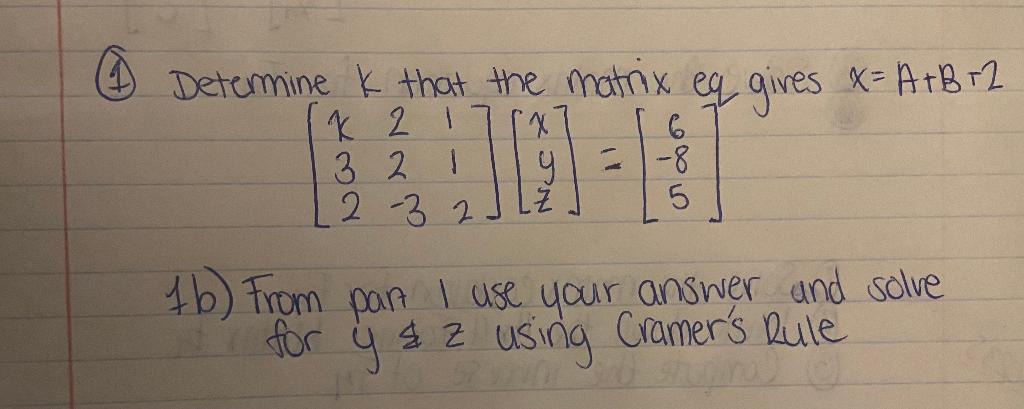 ① Determine k that the matrix eq gives x = A+B+2
[k 2 1] [x] [6]
[3 2 1] [y] = [-8]
[2 -3 2] [z] [5]
1b) From part 1 use your answer and solve
for y & z using Cramer's Rule